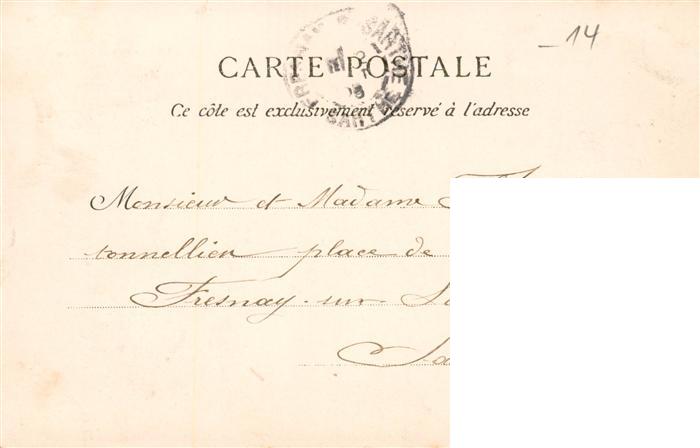 14
CARTE POSTALE
Ce côte est exclusivement réservé à l'adresse
SARTHE
Monsieur et Madame
tonnellier place de
Fresnay-sur-